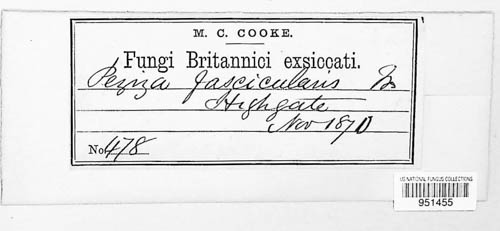 M. C. COOKE.
Fungi Britannici exsiccati.
Peziza fascicularis
Highgate
Nov 1870
No. 478
US NATIONAL FUNGUS COLLECTIONS
951455